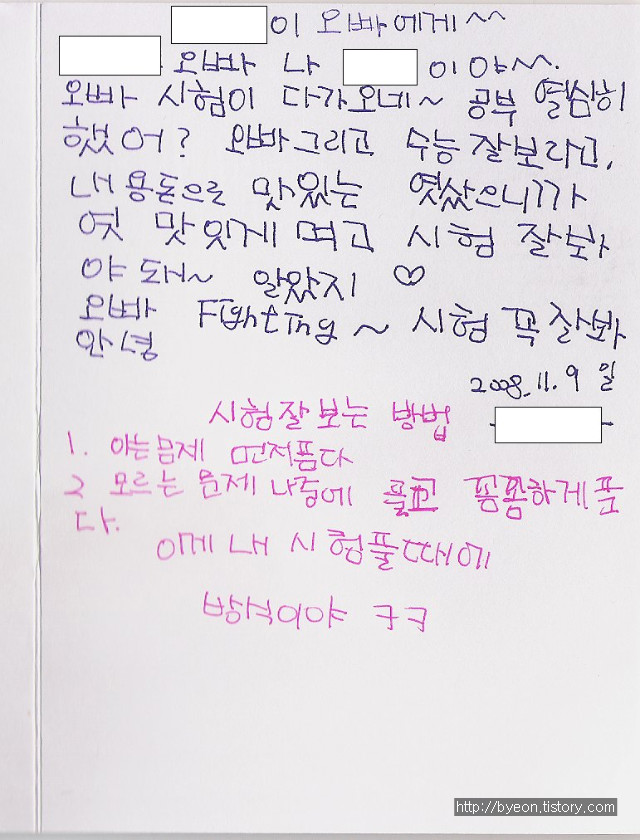 이 오빠에게^^
오빠 나 이야^^.
오빠 시험이 다가오네~ 공부 열심히
했어? 오빠그리고 수능 잘보라고,
내용돈으로 맛있는 엿샀으니까
엿 맛잇게 먹고 시험 잘봐
야 돼~ 알았지 ♡
오빠 Fighting ~ 시험 꼭 잘봐
안녕
2008. 11. 9 일
시험잘보는 방법
1. 아는문제 먼저품다
2 모르는 문제 나중에 풀고 꼼꼼하게품
다.
이게 내 시험풀때에
방식이야 ㅋㅋ
http://byeon.tistory.com